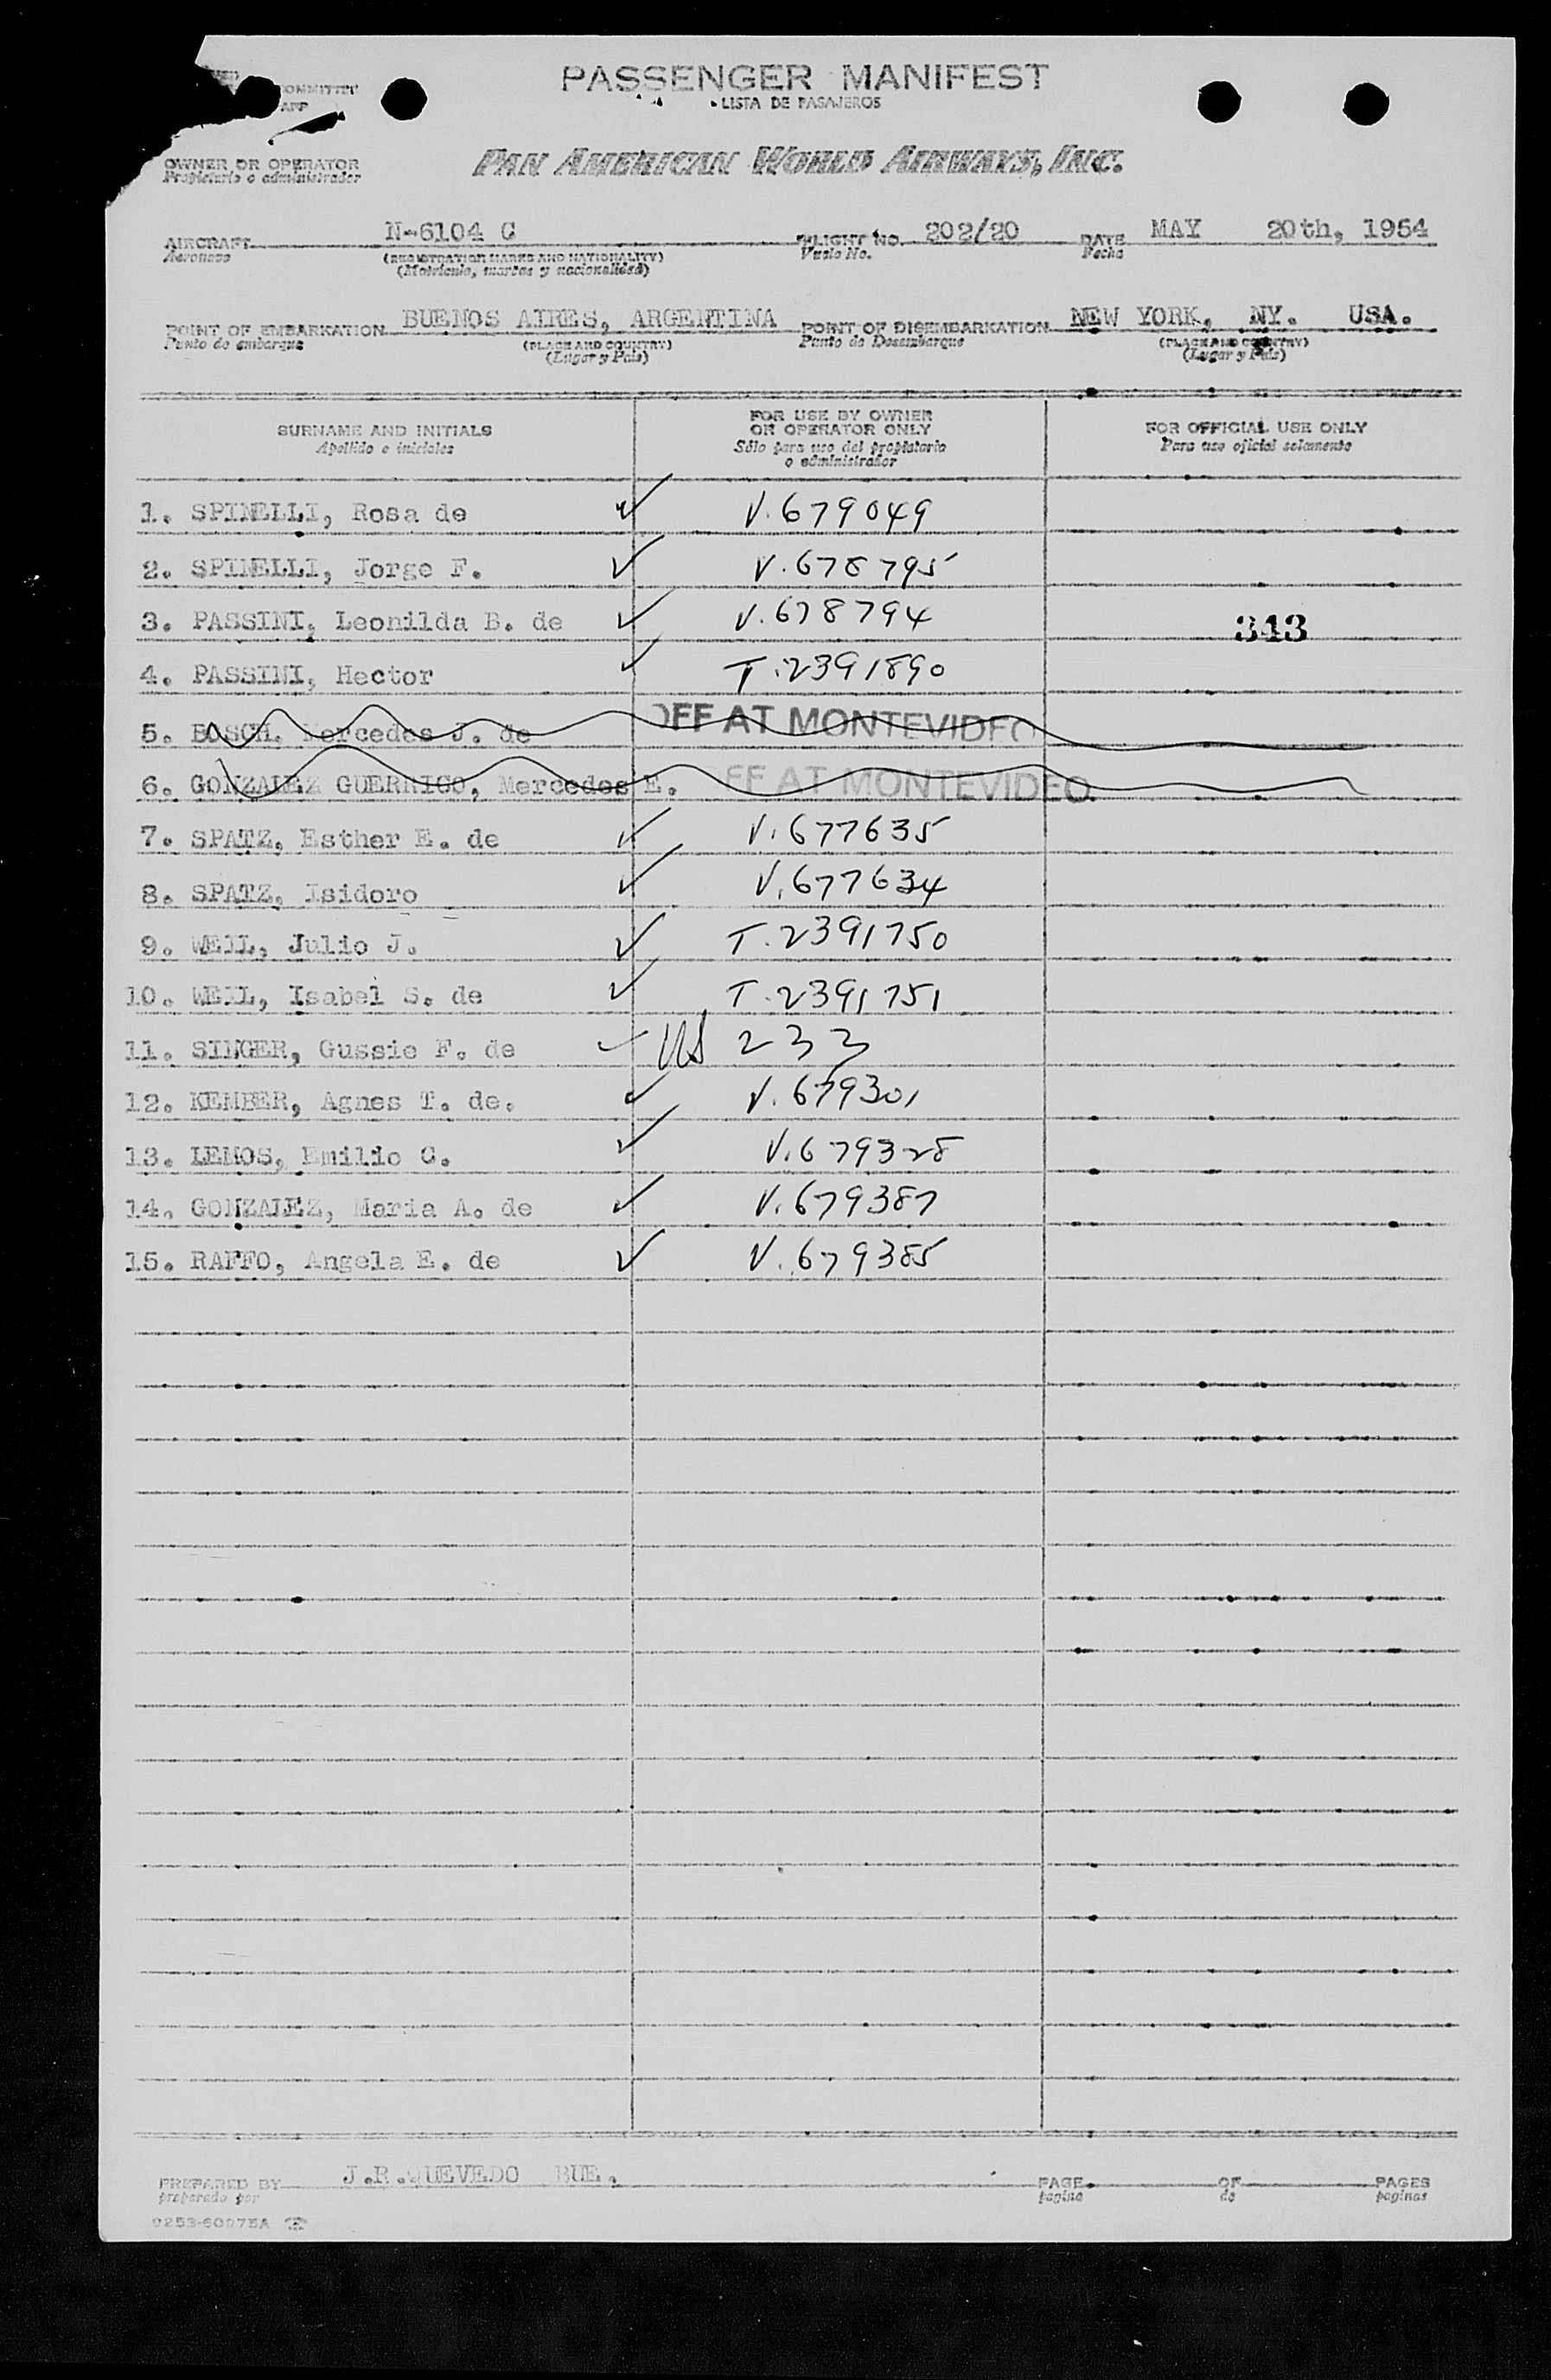 COMMITTEE
APP
PASSENGER MANIFEST
LISTA DE PASAJEROS
OWNER OR OPERATOR
Propietario o administrador
PAN AMERICAN WORLD AIRWAYS, INC.
AIRCRAFT N-6104 C FLIGHT NO. 202/20 DATE MAY 20th, 1954
Aeronave (REGISTRATION MARKS AND NATIONALITY) Vuelo No. Fecha
(Matricula, marcas y nacionalidad)
POINT OF EMBARKATION BUENOS AIRES, ARGENTINA POINT OF DISEMBARKATION NEW YORK, NY. USA.
Punto de embarque (PLACE AND COUNTRY) Punto de Desembarque (PLACE AND COUNTRY)
(Lugar y Pais) (Lugar y Pais)
SURNAME AND INITIALS FOR USE BY OWNER OR OPERATOR ONLY FOR OFFICIAL USE ONLY
Apellido e iniciales Sólo para uso del propietario o administrador Para uso oficial solamente
1. SPINELLI, Rosa de V. 679049
2. SPINELLI, Jorge F. V. 678795
3. PASSINI, Leonilda B. de V. 678794 343
4. PASSINI, Hector T. 2391890
5. BOSCH. Mercedes J. de OFF AT MONTEVIDEO
6. GONZALEZ GUERRICO, Mercedes E. OFF AT MONTEVIDEO
7. SPATZ, Esther E. de V. 677635
8. SPATZ, Isidoro V. 677634
9. WEIL, Julio J. T. 2391750
10. WEIL, Isabel S. de T. 2391751
11. SINGER, Gussie F. de US 233
12. KEMBER, Agnes T. de. V. 679301
13. LEMOS, Emilio C. V. 679328
14. GONZALEZ, Maria A. de V. 679387
15. RAFFO, Angela E. de V. 679385
PREPARED BY J.R.QUEVEDO BUE. PAGE OF PAGES
preparado por pagina de paginas